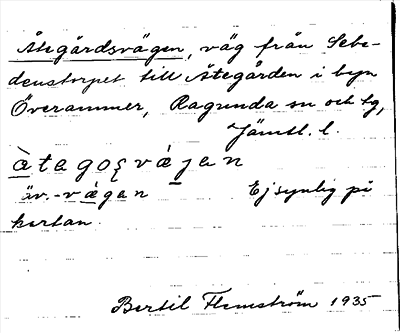 Åtegårdsvägen, väg från Sebe-
denstorpet till Åtegården i byn
Överammer, Ragunda sn och tg,
Jämtl. l.
àtagoʂvájan
äv. -vágan Ej synlig på
kartan.
Bertil Flemström 1935